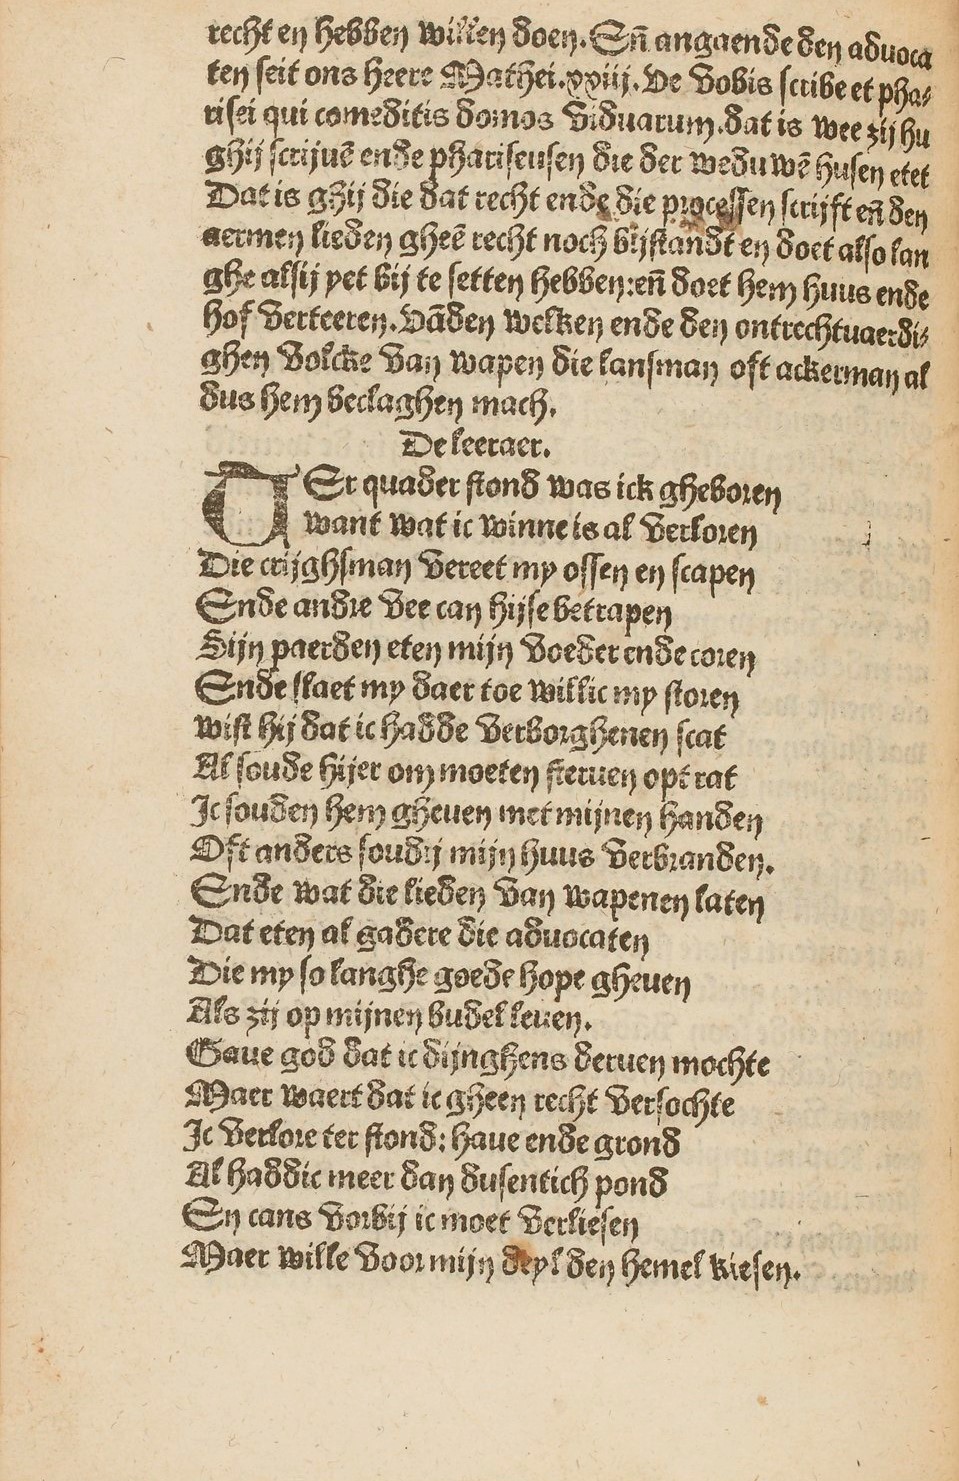 recht en hebben willen doen. Eñ angaende den aduoca
ten seit ons heere Mathei. xxiij. Ve vobis scribe et pha-
risei qui comeditis domos viduarum. dat is wee zij hu
ghij scrijuē ende phariseusen die der weduwē husen etet
Dat is ghij die dat recht ende die processen scrijft eñ den
aermen lieden gheē recht noch bijstandt en doet also lan
ghe alsij yet bij te setten hebben: eñ doet hem huus ende
hof verteeren. Vāden welken ende den ontrechtuaerdi-
ghen volcke van wapen die lansman oft ackerman al
dus hem beclaghen mach.
De leeraer.
TEr quader stond was ick gheboren
want wat ic winne is al verloren
Die crijghsman vereet my ossen en scapen
Ende andre vee can hijse betrapen
Sijn paerden eten mijn voeder ende coren
Ende slaet my daer toe willic my storen
wist hij dat ic hadde verborghenen scat
Al soude hijer om moeten steruen opt rat
Ic souden hem gheuen met mijnen handen
Oft anders soudij mijn huus verbranden.
Ende wat die lieden van wapenen laten
Dat eten al gadere die aduocaten
Die my so langhe goede hope gheuen
Als zij op mijnen budel leuen.
Gaue god dat ic dijnghens deruen mochte
Maer waert dat ic gheen recht versochte
Ic verlore ter stond: haue ende grond
Al haddic meer dan dusentich pond
En cans vorbij ic moet verliesen
Maer wille voor mijn deyl den hemel kiesen.